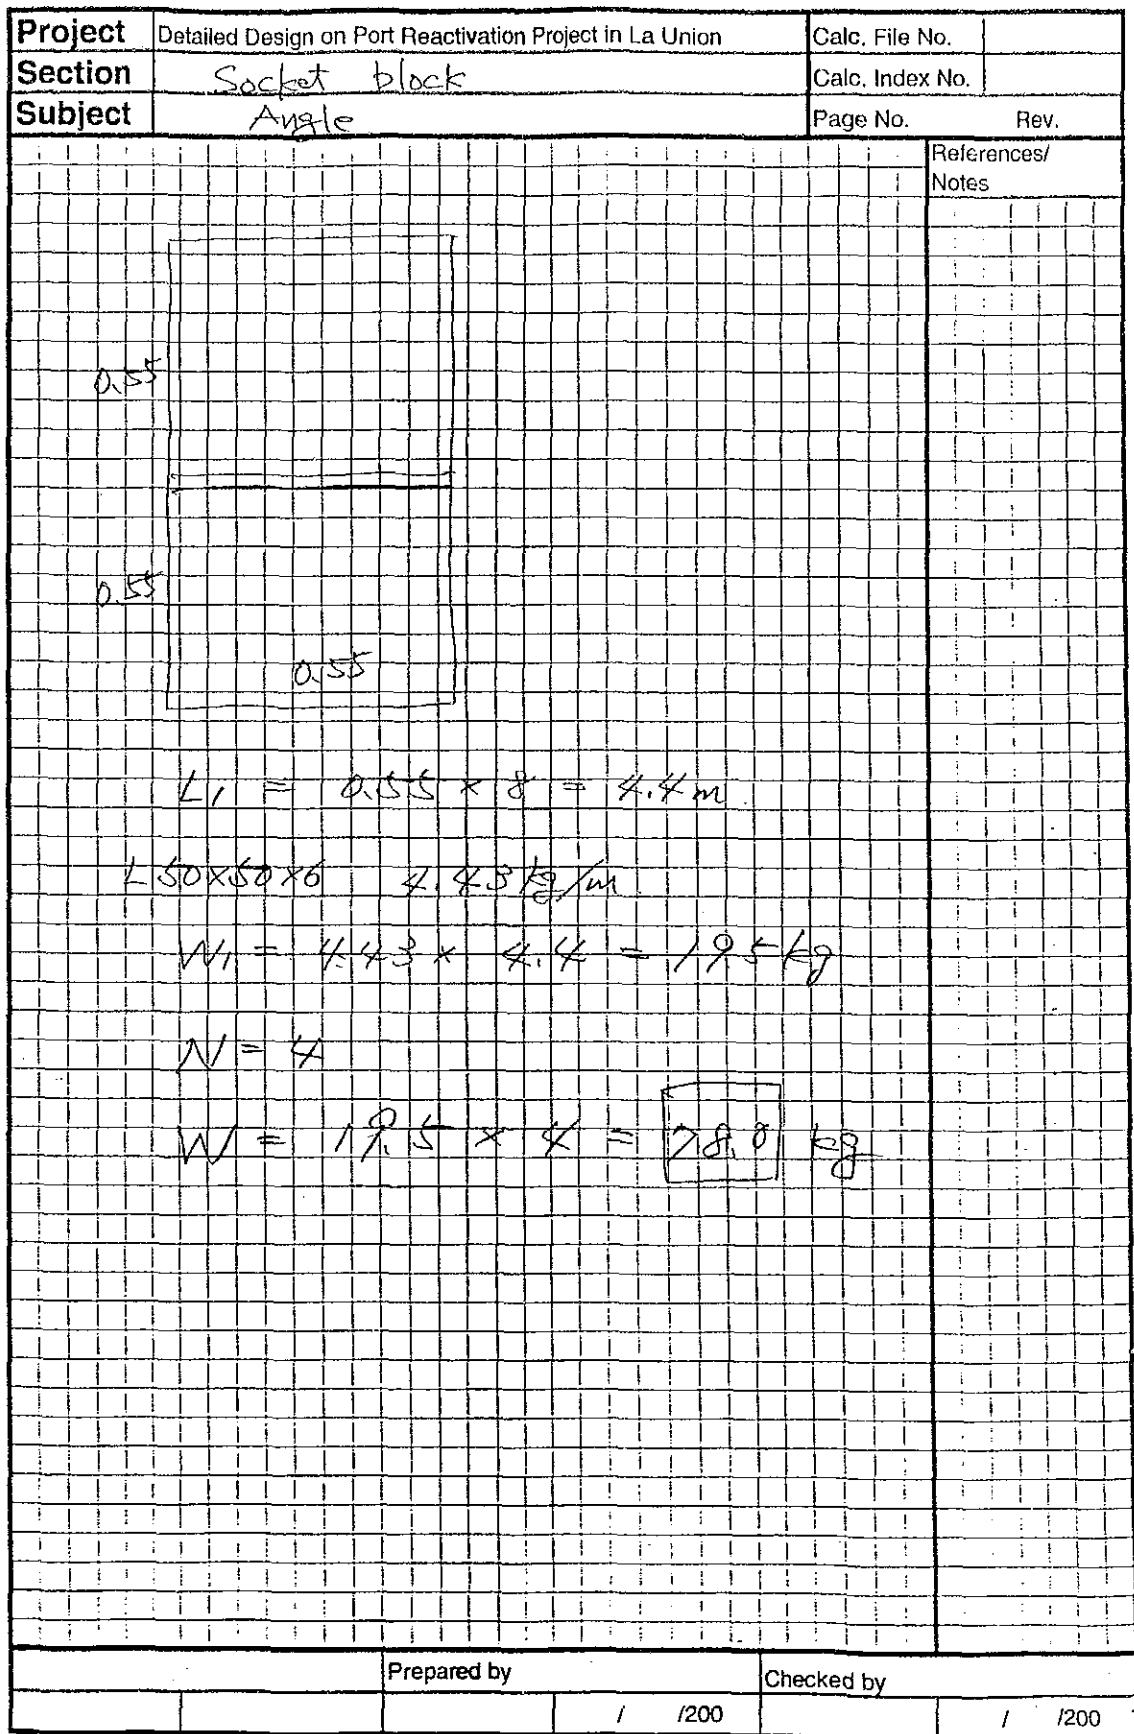 Project Detailed Design on Port Reactivation Project in La Union Calc. File No.
Section Socket block Calc. Index No.
Subject Angle Page No. Rev.
References/
Notes
0.55
0.55
0.55
L1 = 0.55 × 8 = 4.4 m
L 50×50×6 4.43 kg/m
W1 = 4.43 × 4.4 = 19.5 kg
N = 4
W = 19.5 × 4 = 78.0 kg
Prepared by Checked by
/ /200 / /200